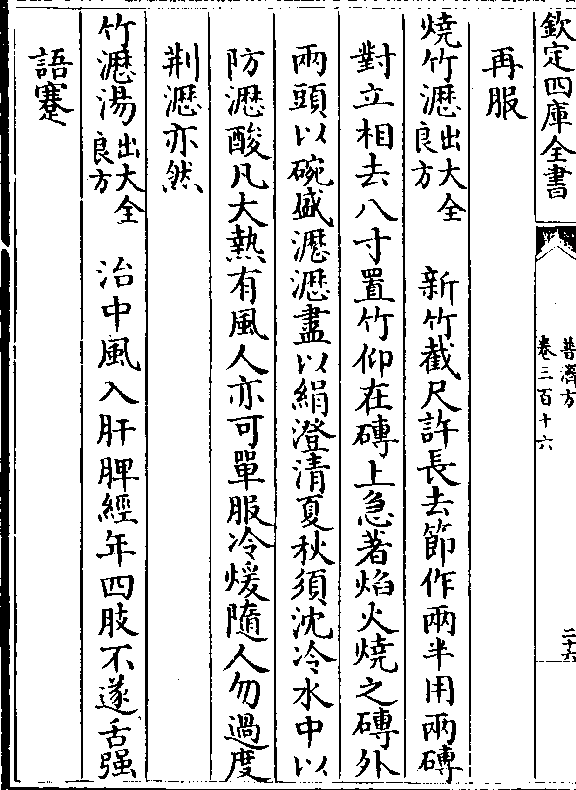 欽定四庫全書
普濟方
卷三百十六
二十六
再服
燒竹瀝出大全良方 新竹截尺許長去節作兩半用兩磚
對立相去八寸置竹仰在磚上急著焰火燒之磚外
兩頭以碗盛瀝瀝盡以絹澄清夏秋須沈冷水中以
防瀝酸凡大熱有風人亦可單服冷煖隨人勿過度
荆瀝亦然
竹瀝湯出大全良方 治中風入肝脾經年四肢不遂舌强
語蹇